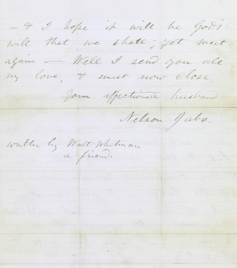 – & I hope it will be God's
will that we shall yet meet
again — Well I send you all
my love, & must now close.
Your affectionate husband
Nelson Jabo.
written by Walt Whitman
a friend.